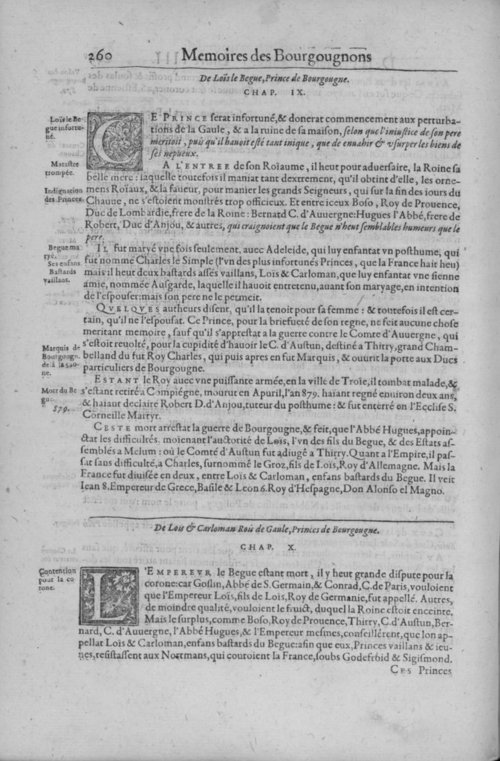 260 Memoires des Bourgougnons
De Loïs le Begue, Prince de Bourgougne.
CHAP. IX.
Loïs le Be
gue infortu-
né.
CE PRINCE serat infortuné, & donerat commencement aux perturba-
tions de la Gaule, & a la ruine de sa maison, selon que l'iniustice de son pere
meritoit, puis qu'il hauoit esté tant inique, que de enuahir & vsurper les biens de
ses nepueux.
Maratre
trompée.
A L'ENTREE de son Roïaume, il heut pour aduersaire, la Roine sa
belle mere: laquelle toutefois il maniat tant dextrement, qu'il obtint d'elle, les orne-
Indignation
des Princes.
mens Roïaux, & la faueur, pour manier les grands Seigneurs, qui sur la fin des iours du
Chauue, ne s'estoient monstrés trop officieux. Et entre iceux Boso, Roy de Prouence,
Duc de Lombardie, frere de la Roine: Bernard C. d'Auuergne: Hugues l'Abbé, frere de
Robert, Duc d'Anjou, & autres, qui craignoient que le Begue n'heut semblables humeurs que le
pere.
Begue ma
ryé.
Ses enfans
Bastards
vaillans.
IL fut maryé vne fois seulement, auec Adeleide, qui luy enfantat vn posthume, qui
fut nommé Charles le Simple (l'vn des plus infortunés Princes, que la France hait heu)
mais il heut deux bastards assés vaillans, Loïs & Carloman, que luy enfantat vne sienne
amie, nommée Ausgarde, laquelle il hauoit entretenu, auant son maryage, en intention
de l'espouser: mais son pere ne le permeit.
QUELQUES autheurs disent, qu'il la tenoit pour sa femme: & toutefois il est cer-
tain, qu'il ne l'espousat. Ce Prince, pour la briefueté de son regne, ne feit aucune chose
meritant memoire, sauf qu'il s'apprestat a la guerre contre le Comte d'Auuergne, qui
Marquis de
Bourgogn.
s'estoit reuolté, pour la cupidité d'hauoir le C. d'Austun, destiné a Thirry, grand Cham-
bellan du fut Roy Charles, qui puis apres en fut Marquis, & ouurit la porte aux Ducs
particuliers de Bourgougne.
Mort du Be
gue.
879.
ESTANT le Roy auec vne puissante armée, en la ville de Troïe, il tombat malade, &
s'estant retiré a Compiégne, mourut en Apuril, l'an 879. haiant regné enuiron deux ans,
& haiant declairé Robert D. d'Anjou, tuteur du posthume: & fut enterré en l'Ecclise S.
Corneille Martyr.
CESTE mort arrestat la guerre de Bourgougne, & feit, que l'Abbé Hugues, appoin-
ctat les difficultés, moïenant l'auctorité de Loïs, l'vn des fils du Begue, & des Estats as-
semblés a Melum: où le Comté d'Austun fut adiugé a Thirry. Quant a l'Empire, il pas-
sat sans difficulté, a Charles, surnommé le Groz, fils de Loïs, Roy d'Allemagne. Mais la
France fut diuisée en deux, entre Loïs & Carloman, enfans bastards du Begue. Il veit
Iean 8. Empereur de Grece, Basile & Leon 6. Roy d'Hespagne, Don Alonso el Magno.
De Loïs & Carloman Rois de Gaule, Princes de Bourgougne.
CHAP. X.
Contention
pour la co
rone.
L'EMPEREUR le Begue estant mort, il y heut grande dispute pour la
corone: car Goslin, Abbé de S. Germain, & Conrad, C. de Paris, vouloient
que l'Empereur Loïs, fils de Loïs, Roy de Germanie, fut appellé. Autres,
de moindre qualité, vouloient le fruict, duquel la Roine estoit enceinte.
Mais le surplus, comme Boso, Roy de Prouence, Thirry, C. d'Austun, Ber-
nard, C. d'Auuergne, l'Abbé Hugues, & l'Empereur mesmes, conseillérent, que lon ap-
pellat Loïs & Carloman, enfans bastards du Begue: afin que eux, Princes vaillans & ieu-
nes, resistassent aux Normans, qui couroient la France, soubs Godefroid & Sigismond.
CES Princes